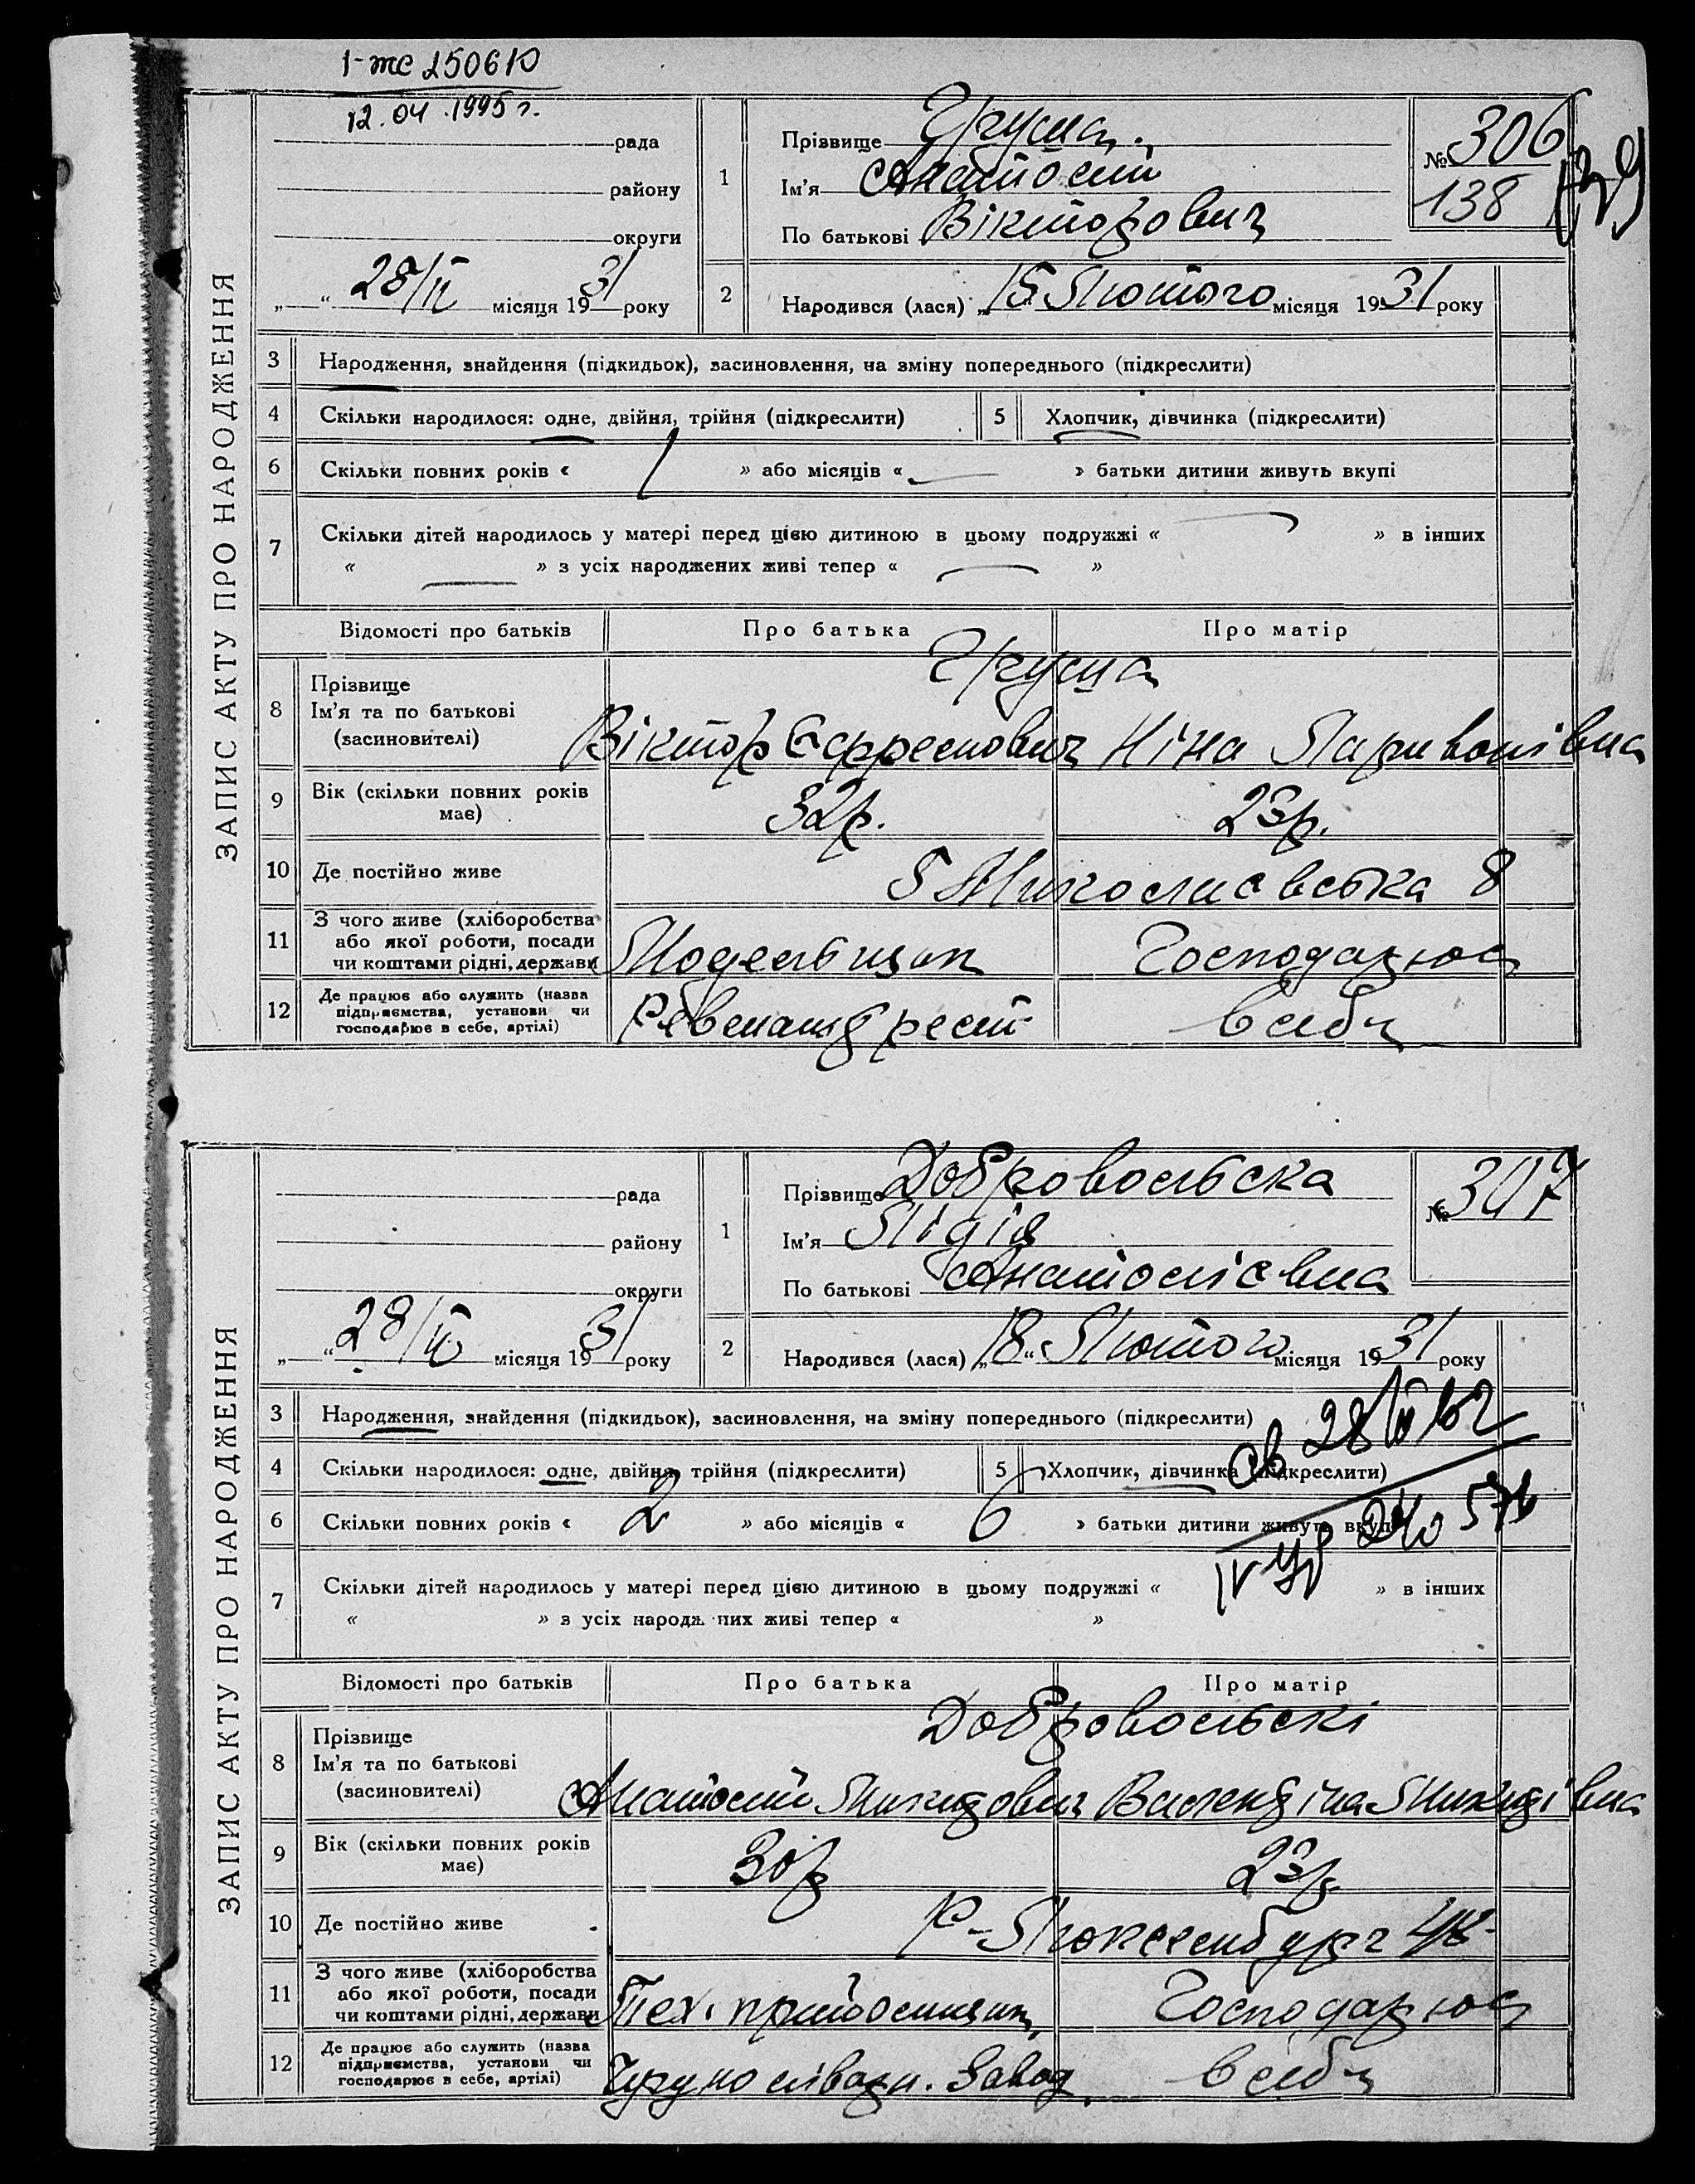 1-ЖС 250610
12.04.1995 г.
ЗАПИС АКТУ ПРО НАРОДЖЕННЯ
рада
району
округи
„ “ 28/II місяця 1931 року
1
Прізвище Груша
Ім'я Анатолій
По батькові Вікторович
№ 306
138
139
2
Народився (лася) „15“ Лютого місяця 1931 року
3 Народження, знайдення (підкидьок), засиновлення, на зміну попереднього (підкреслити)
4 Скільки народилося: одне, двійня, трійня (підкреслити)
5 Хлопчик, дівчинка (підкреслити)
6 Скільки повних років « 1 » або місяців « — » батьки дитини живуть вкупі
7 Скільки дітей народилось у матері перед цією дитиною в цьому подружжі « — » в інших
« — » з усіх народжених живі тепер « — »
Відомості про батьків Про батька Про матір
8 Прізвище
Ім'я та по батькові
(засиновителі)
Груша
Віктор Ніна
9 Вік (скільки повних років
має)
32р. 23р.
10 Де постійно живе
8
11 З чого живе (хліборобства
або якої роботи, посади
чи коштами рідні, держави
Модельщик Господарює
12 Де працює або служить (назва
підприємства, установи чи
господарює в себе, артілі)
в себе
ЗАПИС АКТУ ПРО НАРОДЖЕННЯ
рада
району
округи
„ “ 28/II місяця 1931 року
1
Прізвище Добровольська
Ім'я Лідія
По батькові Анатолієвна
№ 307
2
Народився (лася) „18“ Лютого місяця 1931 року
3 Народження, знайдення (підкидьок), засиновлення, на зміну попереднього (підкреслити)
4 Скільки народилося: одне, двійня, трійня (підкреслити)
5 Хлопчик, дівчинка (підкреслити)
6 Скільки повних років « 2 » або місяців « 6 » батьки дитини живуть вкупі
7 Скільки дітей народилось у матері перед цією дитиною в цьому подружжі « » в інших
« » з усіх народжених живі тепер « »
Відомості про батьків Про батька Про матір
8 Прізвище
Ім'я та по батькові
(засиновителі)
Добровольскі
Анатолій Валентіна
9 Вік (скільки повних років
має)
30р 23р.
10 Де постійно живе
Р-Люксембург
11 З чого живе (хліборобства
або якої роботи, посади
чи коштами рідні, держави
Господарює
12 Де працює або служить (назва
підприємства, установи чи
господарює в себе, артілі)
Завод в себе